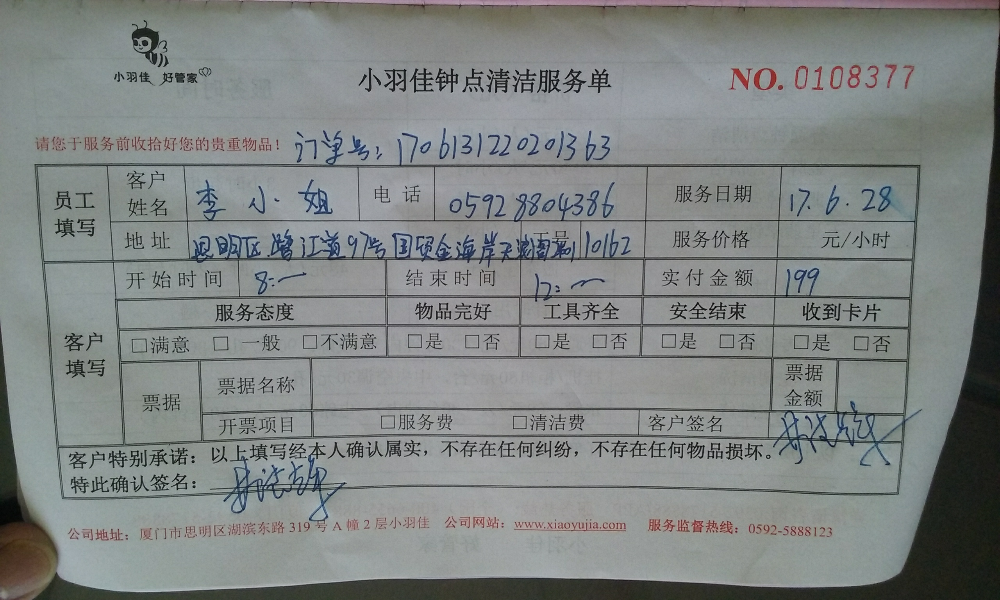 小羽佳 好管家
小羽佳钟点清洁服务单
NO. 0108377
请您于服务前收拾好您的贵重物品！ 订单号：1706131220201363
员工填写 客户姓名 李小姐 电话 05928804386 服务日期 17.6.28
地址 思明区鹭江道97号国贸金海岸 工号 10162 服务价格 元/小时
客户填写 开始时间 8:一 结束时间 12:一 实付金额 199
服务态度 物品完好 工具齐全 安全结束 收到卡片
□满意 □ 一般 □不满意 □是 □否 □是 □否 □是 □否 □是 □否
票据 票据名称 票据金额
开票项目 □服务费 □清洁费 客户签名
客户特别承诺：以上填写经本人确认属实，不存在任何纠纷，不存在任何物品损坏。
特此确认签名：
公司地址：厦门市思明区湖滨东路 319 号 A 幢 2 层小羽佳 公司网站：www.xiaoyujia.com 服务监督热线：0592-5888123